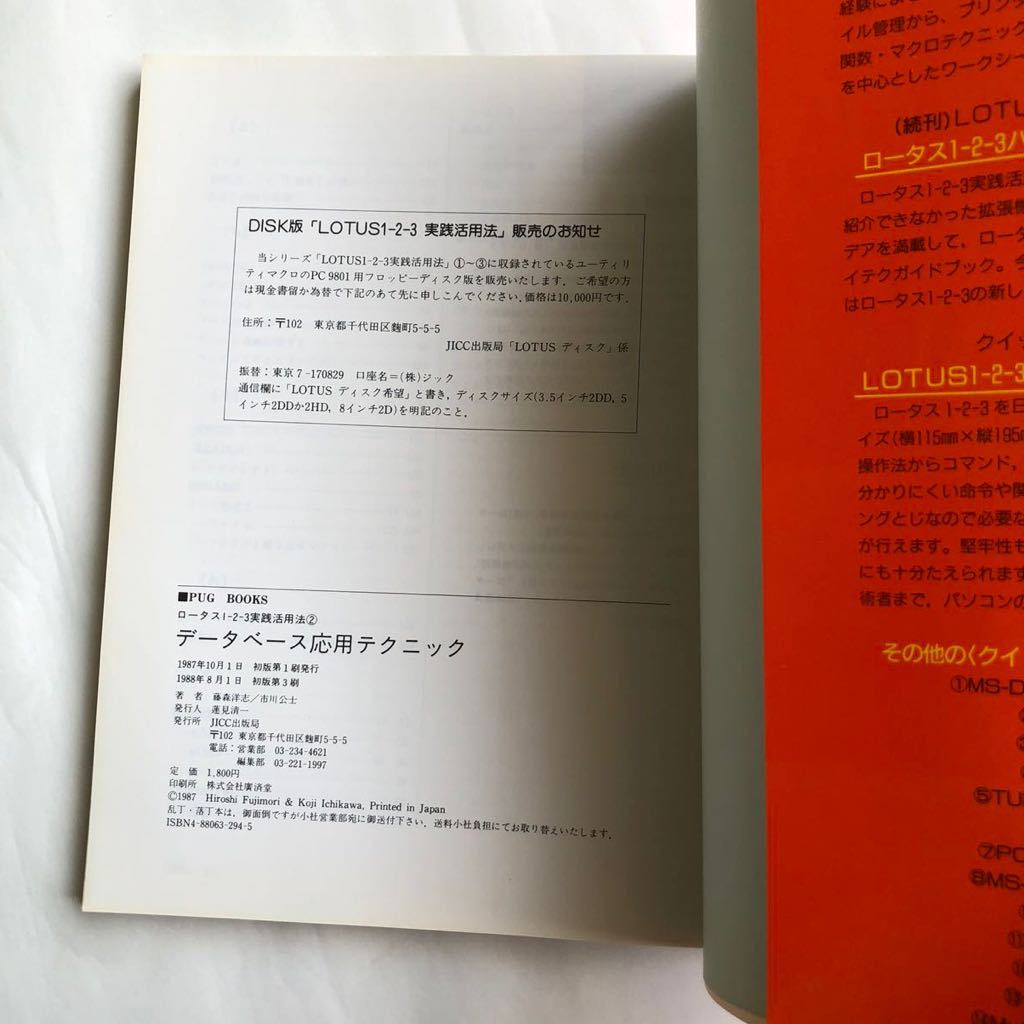 DISK版「LOTUS1-2-3 実践活用法」販売のお知せ
当シリーズ「LOTUS1-2-3実践活用法」①〜③に収録されているユーティリ
ティマクロのPC 9801用フロッピーディスク版を販売いたします．ご希望の方
は現金書留か為替で下記のあて先に申しこんでください．価格は10,000円です．
住所：〒102 東京都千代田区麴町5-5-5
JICC出版局「LOTUS ディスク」係
振替：東京 7-170829 口座名＝(株)ジック
通信欄に「LOTUS ディスク希望」と書き，ディスクサイズ(3.5インチ2DD, 5
インチ2DDか2HD, 8インチ2D)を明記のこと．
■PUG BOOKS
ロータス1-2-3実践活用法②
データベース応用テクニック
1987年10月1日 初版第1刷発行
1988年8月1日 初版第3刷
著 者 藤森洋志／市川公士
発行人 蓮見清一
発行所 JICC出版局
〒102 東京都千代田区麴町5-5-5
電話：営業部 03-234-4621
編集部 03-221-1997
定 価 1,800円
印刷所 株式会社廣済堂
©1987 Hiroshi Fujimori & Koji Ichikawa, Printed in Japan
乱丁・落丁本は，御面倒ですが小社営業部宛に御送付下さい．送料小社負担にてお取り替えいたします．
ISBN4-88063-294-5
イル管理から、プリンタ
関数・マクロテクニック
を中心としたワークシー
(続刊)LOTU
ロータス1-2-3ハ
ロータス1-2-3実践活
紹介できなかった拡張機
デアを満載して、ロータ
イテクガイドブック。今
はロータス1-2-3の新し
クイッ
LOTUS1-2-3
ロータス1-2-3を日
イズ(横115mm×縦195m
操作法からコマンド，
分かりにくい命令や関
ングとじなので必要な
が行えます。堅牢性も
にも十分たえられます
術者まで，パソコンの
その他の〈クイ
①MS-D
⑤TU
⑦PC
⑧MS-